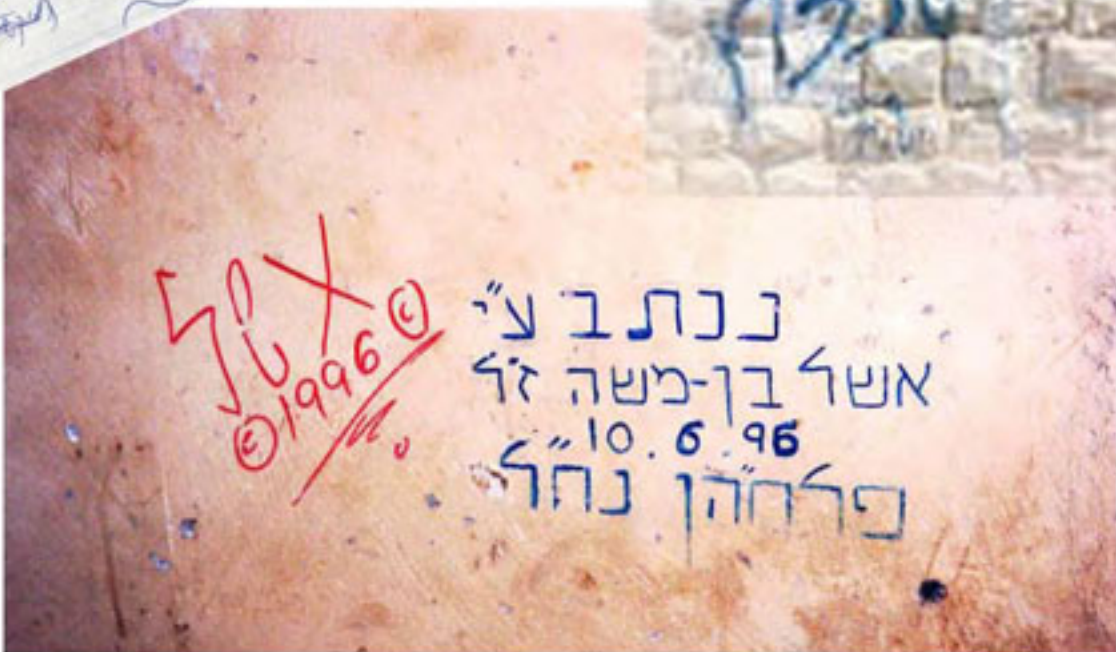 ©1996 ©
נכתב ע"י
אשל בן-משה ז"ל
10.6.96
פלחה"ן נח"ל